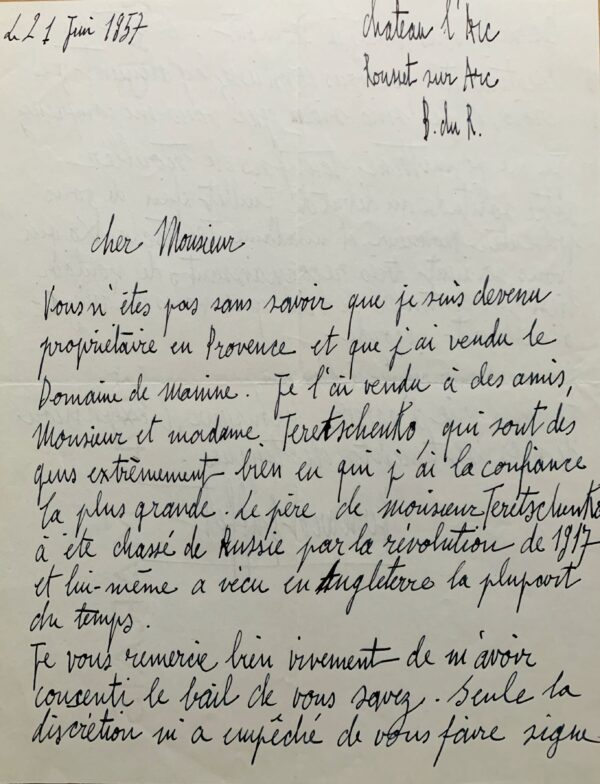 Le 21 Juin 1957
Chateau l'Arc
Rousset sur Arc
B. du R.
cher Monsieur
Vous n'êtes pas sans savoir que je suis devenu
propriétaire en Provence et que j'ai vendu le
Domaine de Manine. Je l'ai vendu à des amis,
Monsieur et madame Teretschenko, qui sont des
gens extrêmement bien en qui j'ai la confiance
la plus grande. Le père de monsieur Teretschenko
à été chassé de Russie par la révolution de 1917
et lui-même a vécu en Angleterre la plupart
du temps.
Je vous remercie bien vivement de m'avoir
concenti le bail de vous savez. Seule la
discrétion m'a empêché de vous faire signe